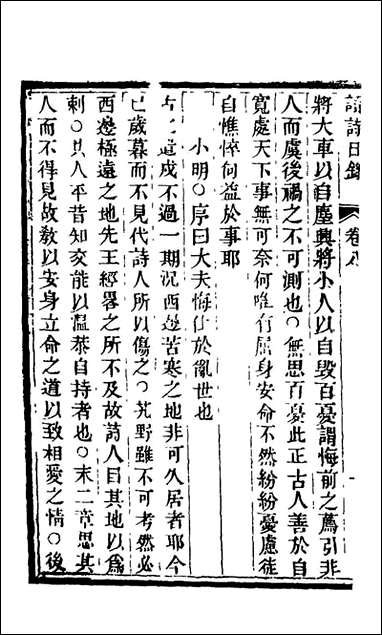 讀詩日錄 卷八
將大車以自塵興將小人以自毀百憂謂悔前之薦引非
人而虞後禍之不可測也○無思百憂此正古人善於自
寬處天下事無可奈何唯有居身安命不然紛紛憂慮徒
自憔悴何益於事耶
小明○序曰大夫悔仕於亂世也
古之遣戍不過一期況西邊苦寒之地非可久居者耶今
已歲暮而不見代詩人所以傷之○艽野雖不可考然必
西邊極遠之地先王經畧之所不及故詩人目其地以爲
刺○其人平昔知友能以溫恭自持者也○末二章思其
人而不得見故敎以安身立命之道以致相愛之情○後